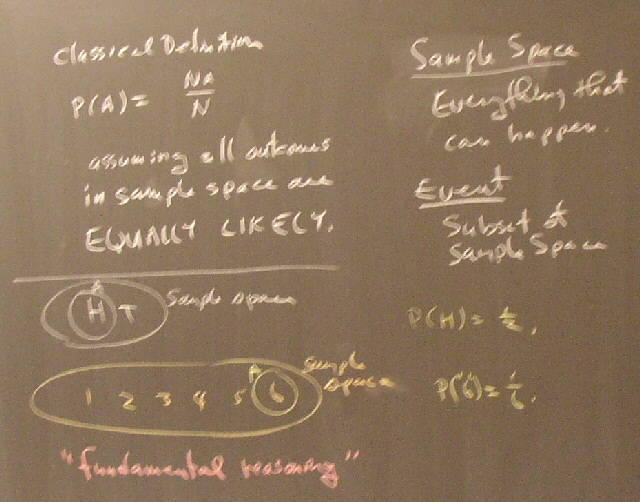 Classical Definition
P(A) = NA/N
assuming all outcomes
in sample space are
EQUALLY LIKELY.
Sample Space
Everything that
can happen.
Event
Subset of
Sample Space
A
H T Sample space
P(H) = 1/2.
A
1 2 3 4 5 6
sample
space
P("6") = 1/6.
"fundamental reasoning"